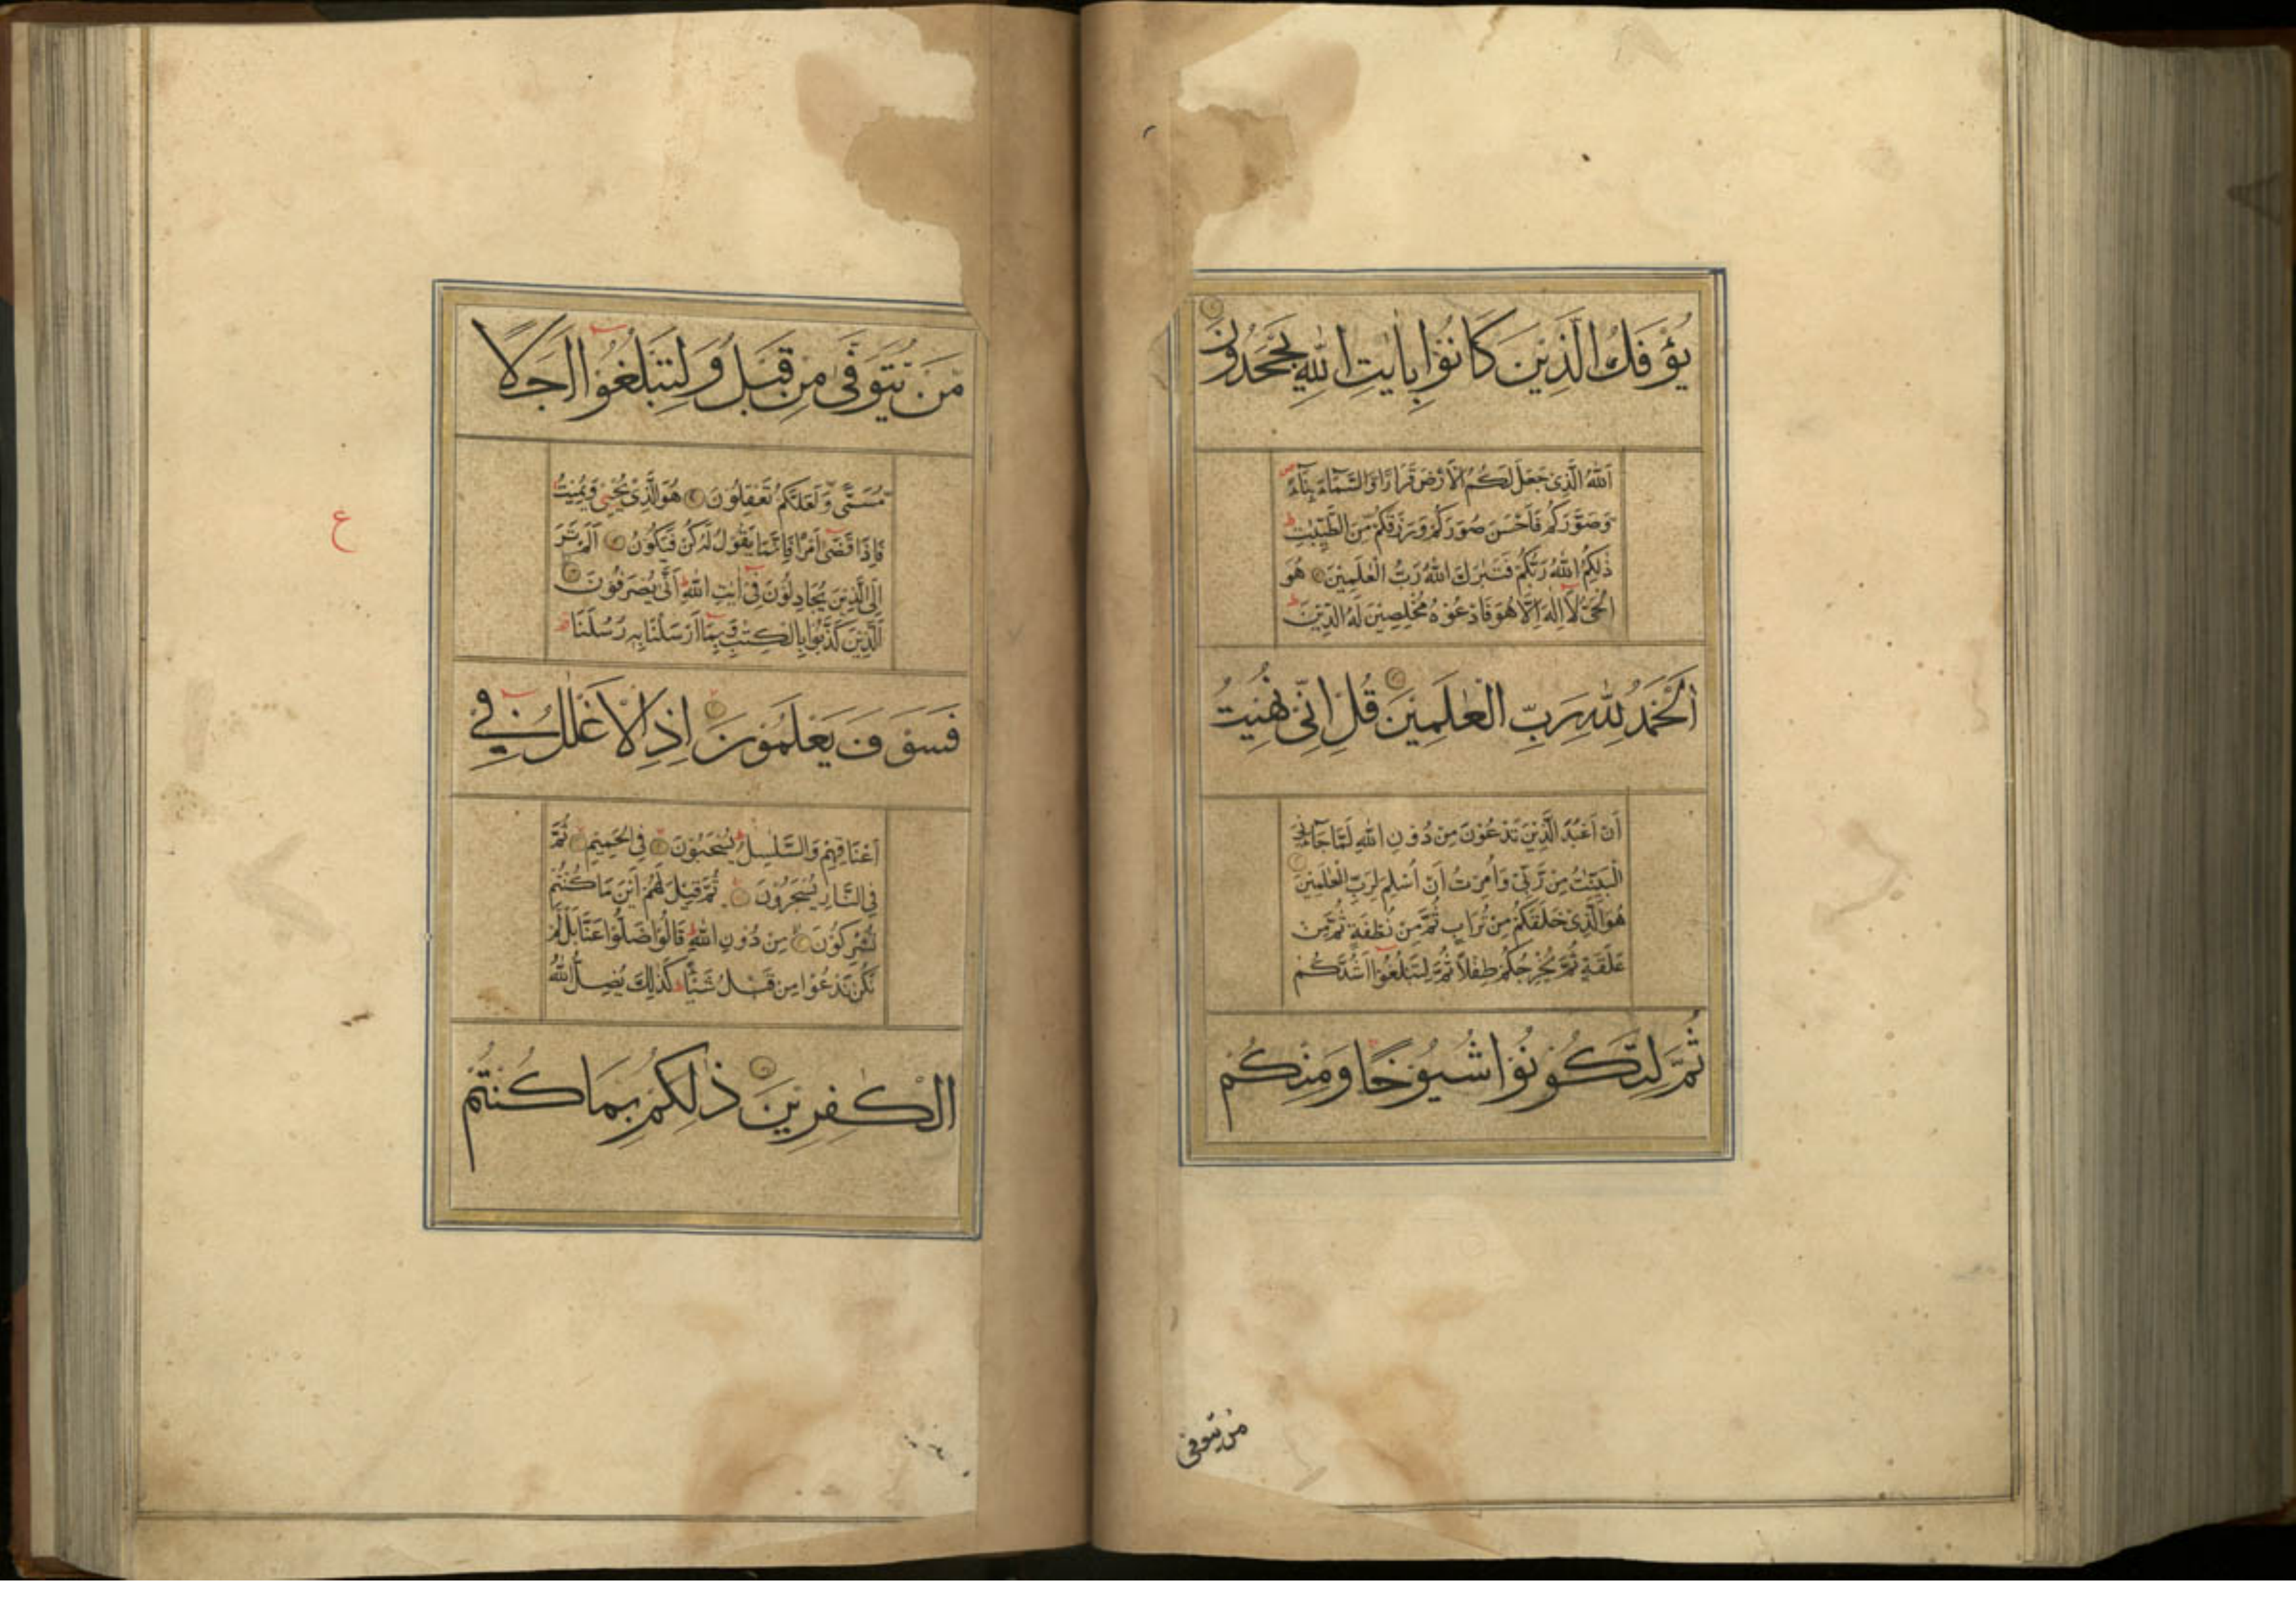 يُؤْفَكُ الَّذِيْنَ كَانُوْا بِاٰيٰتِ اللهِ يَجْحَدُوْنَ
اَللهُ الَّذِىْ جَعَلَ لَكُمُ الْاَرْضَ قَرَارًا وَّالسَّمَآءَ بِنَآءً ص
وَّصَوَّرَكُمْ فَاَحْسَنَ صُوَرَكُمْ وَرَزَقَكُمْ مِّنَ الطَّيِّبٰتِ ط
ذٰلِكُمُ اللهُ رَبُّكُمْ فَتَبٰرَكَ اللهُ رَبُّ الْعٰلَمِيْنَ هُوَ
الْحَىُّ لَآ اِلٰهَ اِلَّا هُوَ فَادْعُوْهُ مُخْلِصِيْنَ لَهُ الدِّيْنَ ط
اَلْحَمْدُ لِلّٰهِ رَبِّ الْعٰلَمِيْنَ قُلْ اِنِّىْ نُهِيْتُ
اَنْ اَعْبُدَ الَّذِيْنَ تَدْعُوْنَ مِنْ دُوْنِ اللهِ لَمَّا جَآءَنِىَ
الْبَيِّنٰتُ مِنْ رَّبِّىْ وَاُمِرْتُ اَنْ اُسْلِمَ لِرَبِّ الْعٰلَمِيْنَ
هُوَ الَّذِىْ خَلَقَكُمْ مِنْ تُرَابٍ ثُمَّ مِنْ نُطْفَةٍ ثُمَّ مِنْ
عَلَقَةٍ ثُمَّ يُخْرِجُكُمْ طِفْلًا ثُمَّ لِتَبْلُغُوْٓا اَشُدَّكُمْ
ثُمَّ لِتَكُوْنُوْا شُيُوْخًا وَمِنْكُمْ
من يتوفى
مَنْ يُّتَوَفّٰى مِنْ قَبْلُ وَلِتَبْلُغُوْٓا اَجَلًا
مُّسَمًّى وَّلَعَلَّكُمْ تَعْقِلُوْنَ هُوَ الَّذِىْ يُحْيٖ وَيُمِيْتُ
فَاِذَا قَضٰٓى اَمْرًا فَاِنَّمَا يَقُوْلُ لَهٗ كُنْ فَيَكُوْنُ اَلَمْ تَرَ
اِلَى الَّذِيْنَ يُجَادِلُوْنَ فِىْٓ اٰيٰتِ اللهِ ط اَنّٰى يُصْرَفُوْنَ
ع
الَّذِيْنَ كَذَّبُوْا بِالْكِتٰبِ وَبِمَآ اَرْسَلْنَا بِهٖ رُسُلَنَا
فَسَوْفَ يَعْلَمُوْنَ اِذِ الْاَغْلٰلُ فِىْٓ
اَعْنَاقِهِمْ وَالسَّلٰسِلُ ط يُسْحَبُوْنَ فِى الْحَمِيْمِ ثُمَّ
فِى النَّارِ يُسْجَرُوْنَ ثُمَّ قِيْلَ لَهُمْ اَيْنَ مَا كُنْتُمْ
تُشْرِكُوْنَ مِنْ دُوْنِ اللهِ ط قَالُوْا ضَلُّوْا عَنَّا بَلْ لَّمْ
نَكُنْ نَّدْعُوْا مِنْ قَبْلُ شَيْئًا ط كَذٰلِكَ يُضِلُّ اللهُ
الْكٰفِرِيْنَ ذٰلِكُمْ بِمَا كُنْتُمْ